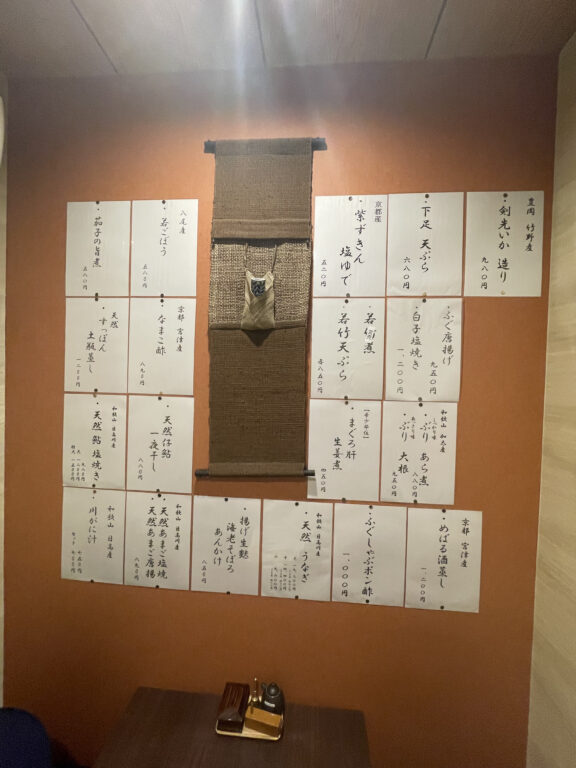 豊岡 竹野産
・剣先いか 造り
九八〇円
・下足 天ぷら
六八〇円
京都産
・紫ずきん
塩ゆで
五二〇円
八尾産
・若ごぼう
五八〇円
・茄子の旨煮
五八〇円
・ふぐ唐揚げ
九五〇円
・白子塩焼き
一、二〇〇円
・若筍煮
・若竹天ぷら
各八五〇円
京都 宮津産
・なまこ酢
八九〇円
天然
・すっぽん
土瓶蒸し
一二〇〇円
和歌山
・ぶり あら煮
八八〇円
・ぶり 大根
九五〇円
・まぐろ肝
生姜煮
四五〇円
・天然仔鮎
一夜干し
八八〇円
和歌山 日高川産
・天然 鮎 塩焼き
京都 宮津産
・めばる酒蒸し
一、二〇〇円
・ふぐしゃぶポン酢
一、〇〇〇円
和歌山 日高川産
・天然 うなぎ
・揚げ生麩
海老そぼろ
あんかけ
八五〇円
和歌山 日高川産
・天然あまご塩焼
・天然あまご唐揚
八九〇円
和歌山 日高産
・川がに汁